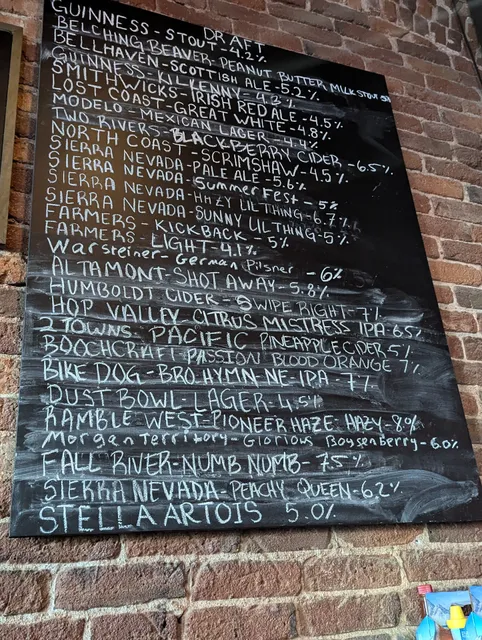 DRAFT
GUINNESS - STOUT - 4.2%
BELCHING BEAVER, PEANUT BUTTER MILK STOUT
BELLHAVEN - SCOTTISH ALE - 5.2%
GUINNESS - KILKENNY - 4.3%
SMITHWICKS - IRISH RED ALE - 4.5%
LOST COAST - GREAT WHITE - 4.8%
MODELO - MEXICAN LAGER - 4.4%
TWO RIVERS - BLACKBERRY CIDER - 6.5%
NORTH COAST - SCRIMSHAW - 4.5%
SIERRA NEVADA - PALE ALE - 5.6%
SIERRA NEVADA - Summer Fest - 5%
SIERRA NEVADA - HAZY LIL THING - 6.7%
SIERRA NEVADA - SUNNY LIL THING - 5%
FARMERS - KICKBACK - 5%
FARMERS - LIGHT - 4.1%
Warsteiner - German Pilsner - 6%
ALTAMONT - SHOT AWAY - 5.8%
HUMBOLDT CIDER - SWIPE RIGHT - 7%
HOP VALLEY CITRUS MISTRESS IPA 6.5%
2 TOWNS PACIFIC PINEAPPLE CIDER 5%
BOOCHCRAFT PASSION BLOOD ORANGE 7%
BIKE DOG - BRO HYMN NE-IPA - 7%
DUST BOWL - LAGER - 4.5%
RAMBLE WEST - PIONEER HAZE HAZY - 8.9%
Morgan Territory - Glorious Boysenberry - 6.0%
FALL RIVER - NUMB NUMB - 7.5%
SIERRA NEVADA - PEACHY QUEEN - 6.2%
STELLA ARTOIS 5.0%